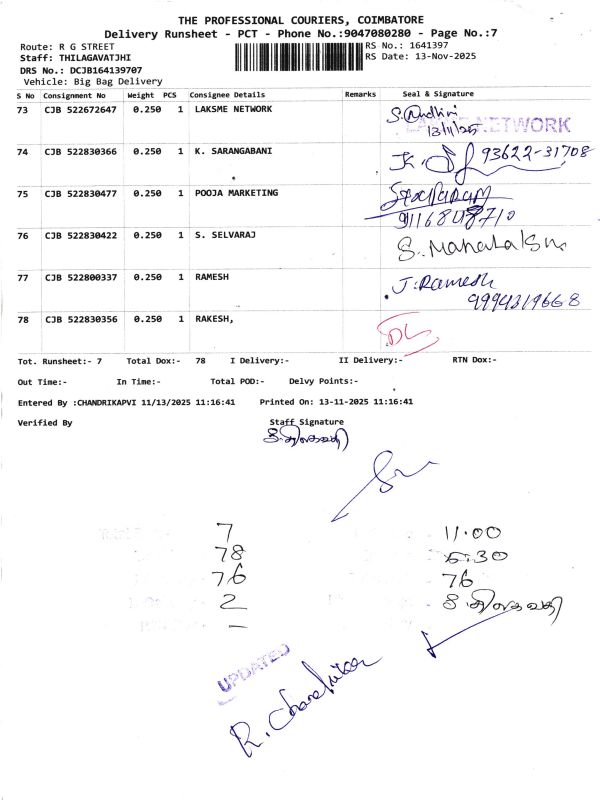 THE PROFESSIONAL COURIERS, COIMBATORE
Delivery Runsheet - PCT - Phone No.:9047080280 - Page No.:7
Route: R G STREET
RS No.: 1641397
Staff: THILAGAVATJHI
RS Date: 13-Nov-2025
DRS No.: DCJB164139707
Vehicle: Big Bag Delivery
S No Consignment No Weight PCS Consignee Details Remarks Seal & Signature
73 CJB 522672647 0.250 1 LAKSME NETWORK
13/11/25 NETWORK
74 CJB 522830366 0.250 1 K. SARANGABANI 93622-31708
75 CJB 522830477 0.250 1 POOJA MARKETING
76 CJB 522830422 0.250 1 S. SELVARAJ
77 CJB 522800337 0.250 1 RAMESH J. Ramesh
9994319668
78 CJB 522830356 0.250 1 RAKESH, DL
Tot. Runsheet:- 7 Total Dox:- 78 I Delivery:- II Delivery:- RTN Dox:-
Out Time:- In Time:- Total POD:- Delvy Points:-
Entered By :CHANDRIKAPVI 11/13/2025 11:16:41 Printed On: 13-11-2025 11:16:41
Verified By Staff Signature
7 11.00
78 5.30
76 76
2
UPDATED